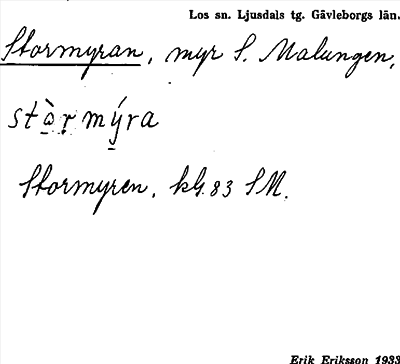 Los sn. Ljusdals tg. Gävleborgs län.
Stormyran, myr S. Malungen,
stà̱ṛmý̱ra
Stormyren, kG. 83 SM.
Erik Eriksson 1933